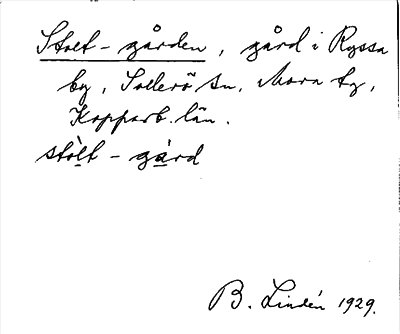 Stolt-gården, gård i Ryssa
by, Sollerö sn, Mora tg,
Kopparb. län.
stò̱lt - gà̱rd
B. Lindén 1929.